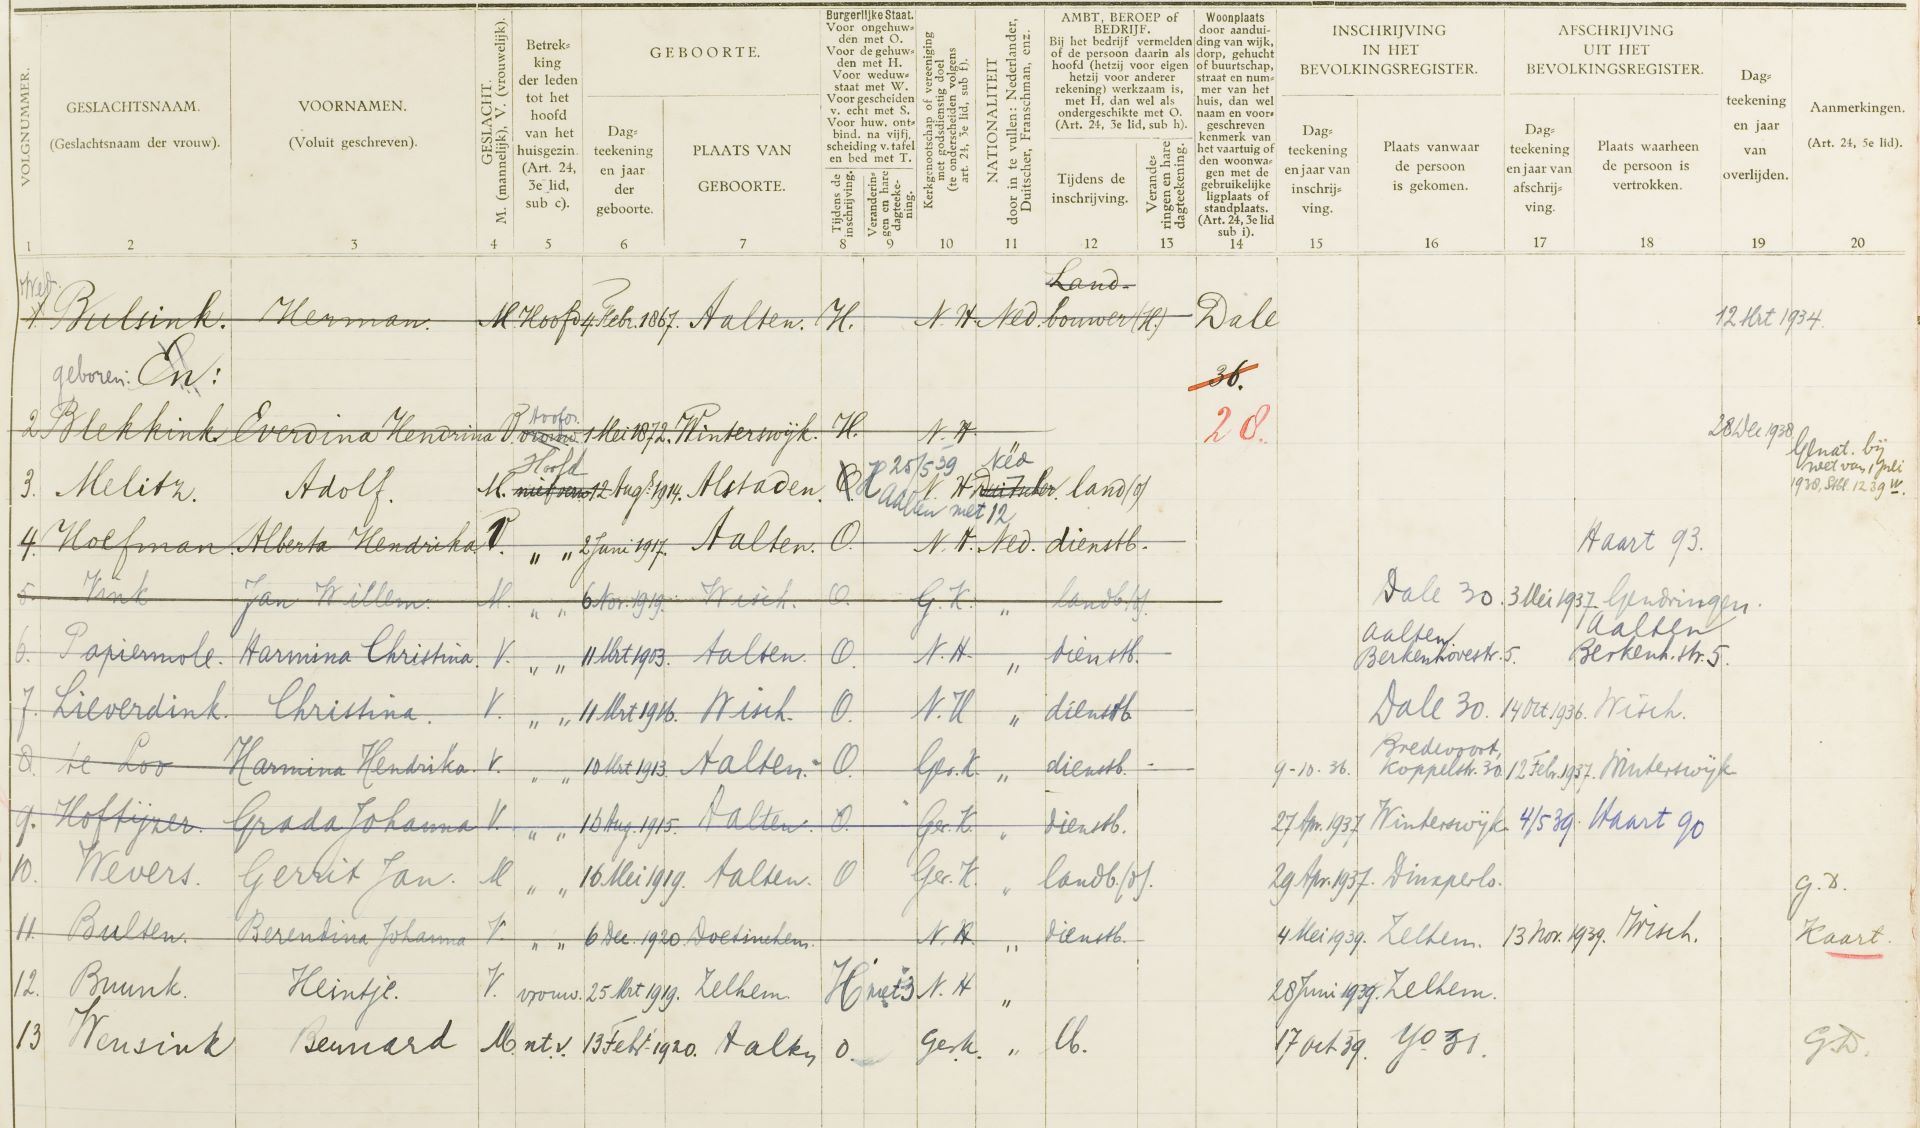 VOLGNUMMER.
1
GESLACHTSNAAM.
(Geslachtsnaam der vrouw).
2
VOORNAMEN.
(Voluit geschreven).
3
GESLACHT.
M. (mannelijk), V. (vrouwelijk).
4
Betrek-
king
der leden
tot het
hoofd
van het
huisgezin.
(Art. 24,
3e lid,
sub c).
5
GEBOORTE.
Dag-
teekening
en jaar
der
geboorte.
6
PLAATS VAN
GEBOORTE.
7
Burgerlijke Staat.
Voor ongehuw-
den met O.
Voor de gehuw-
den met H.
Voor weduw-
staat met W.
Voor gescheiden
v. echt met S.
Voor huw. ont-
bind. na vijfj.
scheiding v. tafel
en bed met T.
Tijdens de
inschrijving.
8
Veranderin-
gen en hare
dagteeke-
ning.
9
Kerkgenootschap of vereeniging
met godsdienstig doel
(te onderscheiden volgens
art. 24, 3e lid, sub f).
10
NATIONALITEIT
door in te vullen: Nederlander,
Duitscher, Franschman, enz.
11
AMBT, BEROEP of
BEDRIJF.
Bij het bedrijf vermelden
of de persoon daarin als
hoofd (hetzij voor eigen
hetzij voor anderer
rekening) werkzaam is,
met H, dan wel als
ondergeschikte met O.
(Art. 24, 3e lid, sub h).
Tijdens de
inschrijving.
12
Verande-
ringen en hare
dagteekening.
13
Woonplaats
door aandui-
ding van wijk,
dorp, gehucht
of buurtschap,
straat en num-
mer van het
huis, dan wel
naam en voor-
geschreven
kenmerk van
het vaartuig of
den woonwa-
gen met de
gebruikelijke
ligplaats of
standplaats.
(Art. 24, 3e lid
sub i).
14
INSCHRIJVING
IN HET
BEVOLKINGSREGISTER.
Dag-
teekening
en jaar van
inschrij-
ving.
15
Plaats vanwaar
de persoon
is gekomen.
16
AFSCHRIJVING
UIT HET
BEVOLKINGSREGISTER.
Dag-
teekening
en jaar van
afschrij-
ving.
17
Plaats waarheen
de persoon is
vertrokken.
18
Dag-
teekening
en jaar
van
overlijden.
19
Aanmerkingen.
(Art. 24, 5e lid).
20
Wed.
Land-
1. Bulsink. Herman. M. Hoofd 4 Febr. 1867. Aalten. H. N.H. Ned. bouwer (H.) Dale 12 Mrt 1934.
geboren: En: 36.
Hoofd.
2 Blekkink Everdina Hendrina V. vrouw. 1 Mei 1872. Winterswijk. H. N.H. 28. 28 Dec 1938
Hoofd 25/5 39 Ned Genat. bij
wet van 1 Juli
3. Melitz. Adolf. M. 12 Aug. 1914. Alstaden. O H N.H. Duitscher. land (o) 1938, Stbl. 1239
Aalten met 12
4. Hoefman. Alberta Hendrika V. " " 2 Juni 1917. Aalten. O. N.H. Ned. dienstb. Haart 93.
5. Vink Jan Willem. M. " " 6 Nov. 1919. Wisch. O. G.K. " landb. (o). Dale 30. 3 Mei 1937. Gendringen.
Aalten Aalten
6. Papiermole. Harmina Christina. V. " " 11 Mrt 1903. Aalten. O. N.H. " dienstb. Berkenhovestr. 5. Berkenh. str. 5.
7. Lieverdink. Christina. V. " " 11 Mrt 1916. Wisch. O. N.H " dienstb Dale 30. 14 Oct 1936. Wisch.
Bredevoort,
8. te Loo Harmina Hendrika. V. " " 10 Mrt 1913. Aalten. O. Ger. K. " dienstb. 9-10. 36. Koppelstr. 30. 12 Febr. 1937. Winterswijk
9. Hoftijzer. Grada Johanna V. " " 16 Aug. 1915. Aalten. O. Ger. K. " dienstb. 27 Apr. 1937 Winterswijk. 4/5 39. Haart 90
10. Wevers. Gerrit Jan. M " " 16 Mei 1919. Aalten. O Ger. K. " landb. (o). 29 Apr. 1937. Dinxperlo. G.D.
11. Bulten. Berendina Johanna V. " " 6 Dec. 1920. Doetinchem. N.H. " dienstb. 4 Mei 1939. Zelhem. 13 Nov. 1939. Wisch. Kaart.
12. Buunk. Heintje. V. vrouw. 25 Mrt 1919. Zelhem. H met 3 N.H " 28 Juni 1939. Zelhem.
13 Wensink Bernard M. nt. v. 13 Febr. 1920. Aalten O. Ger. K. " lb. 17 Oct 39. Yo 31. G.D.